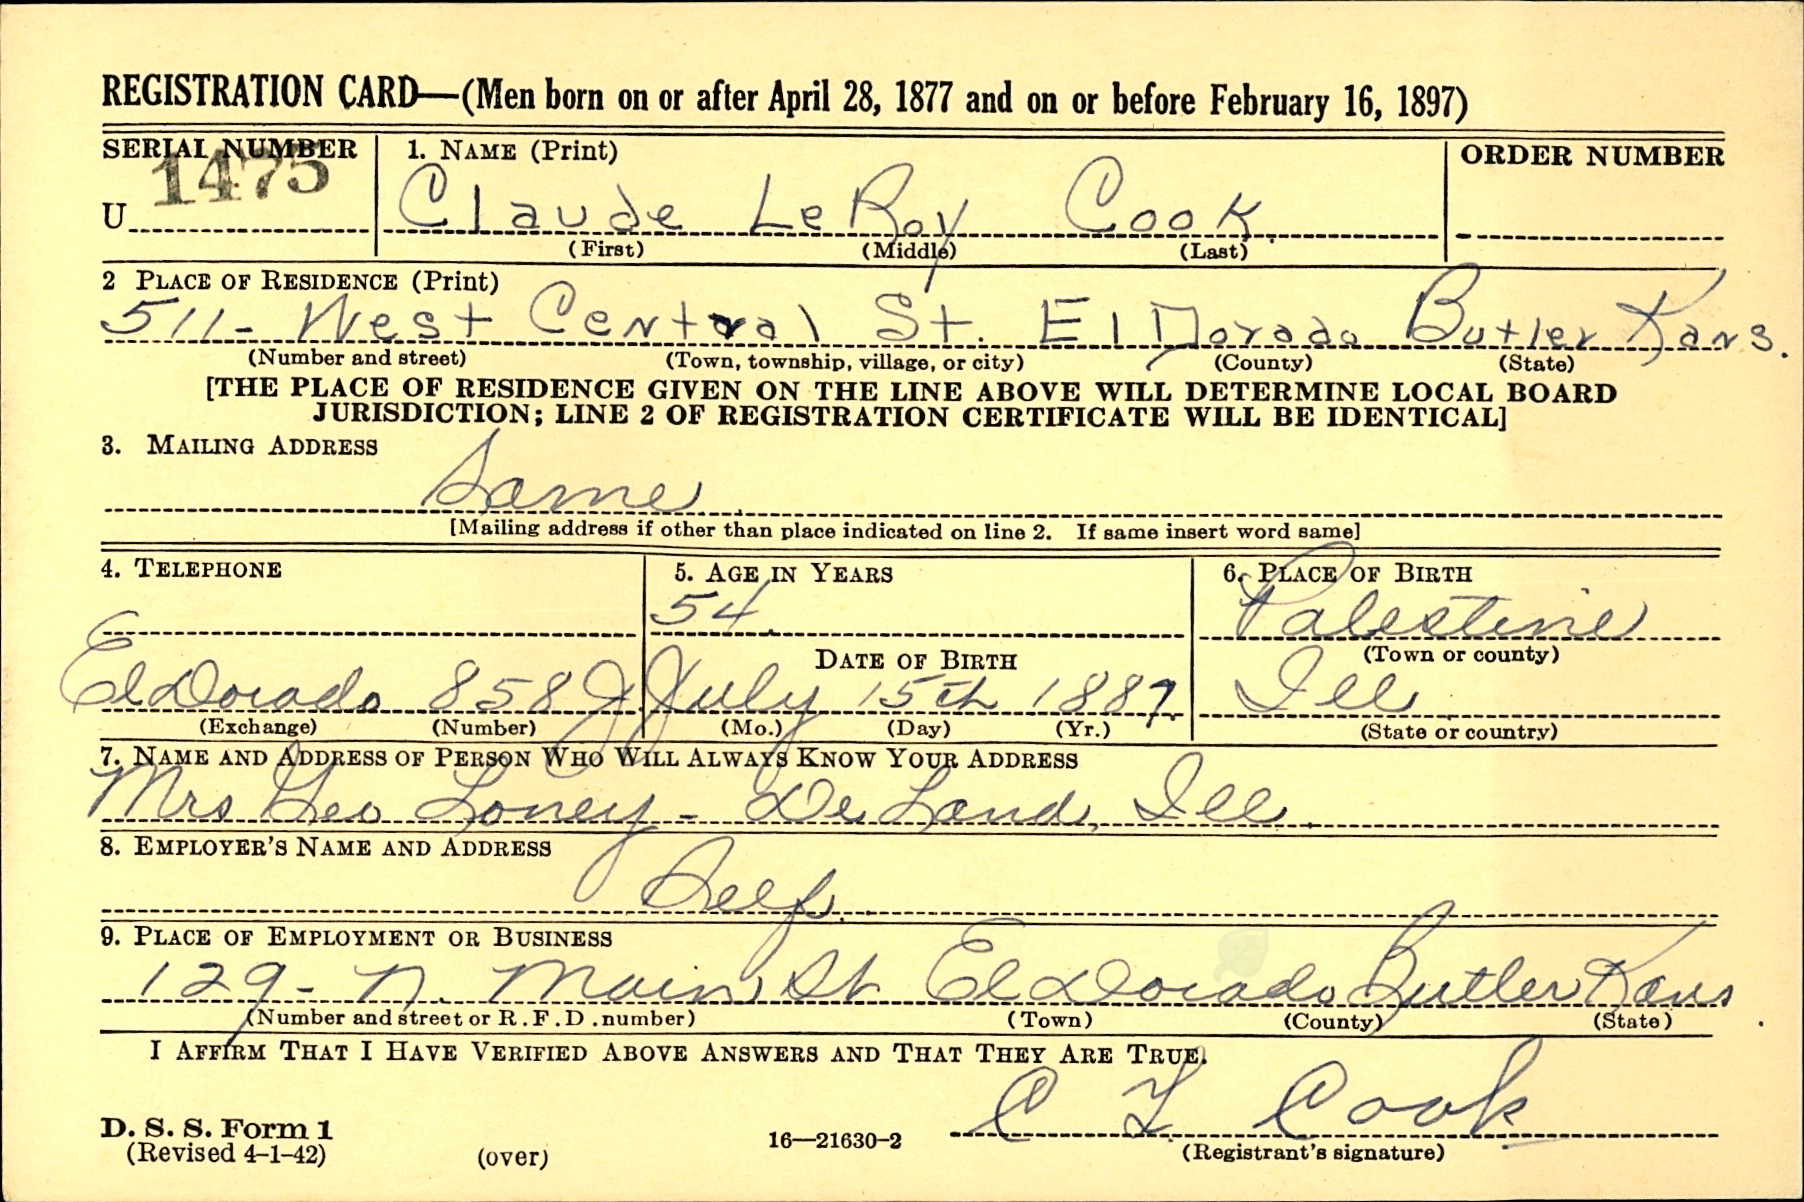 REGISTRATION CARD—(Men born on or after April 28, 1877 and on or before February 16, 1897)
SERIAL NUMBER 1. NAME (Print) ORDER NUMBER
U 1475 Claude LeRoy Cook.
(First) (Middle) (Last)
2 PLACE OF RESIDENCE (Print)
511- West Central St. El Dorado Butler Kans.
(Number and street) (Town, township, village, or city) (County) (State)
[THE PLACE OF RESIDENCE GIVEN ON THE LINE ABOVE WILL DETERMINE LOCAL BOARD
JURISDICTION; LINE 2 OF REGISTRATION CERTIFICATE WILL BE IDENTICAL]
3. MAILING ADDRESS
Same
[Mailing address if other than place indicated on line 2. If same insert word same]
4. TELEPHONE 5. AGE IN YEARS 6. PLACE OF BIRTH
54. Palestine
DATE OF BIRTH (Town or county)
ElDorado 858J July 15th 1887. Ill
(Exchange) (Number) (Mo.) (Day) (Yr.) (State or country)
7. NAME AND ADDRESS OF PERSON WHO WILL ALWAYS KNOW YOUR ADDRESS
Mrs Geo Loney - De Land, Ill.
8. EMPLOYER'S NAME AND ADDRESS
Self.
9. PLACE OF EMPLOYMENT OR BUSINESS
129- N. Main St El Dorado Butler Kans
(Number and street or R.F.D. number) (Town) (County) (State)
I AFFIRM THAT I HAVE VERIFIED ABOVE ANSWERS AND THAT THEY ARE TRUE.
C L Cook
D. S. S. Form 1
(Revised 4-1-42) (over) 16—21630-2 (Registrant's signature)